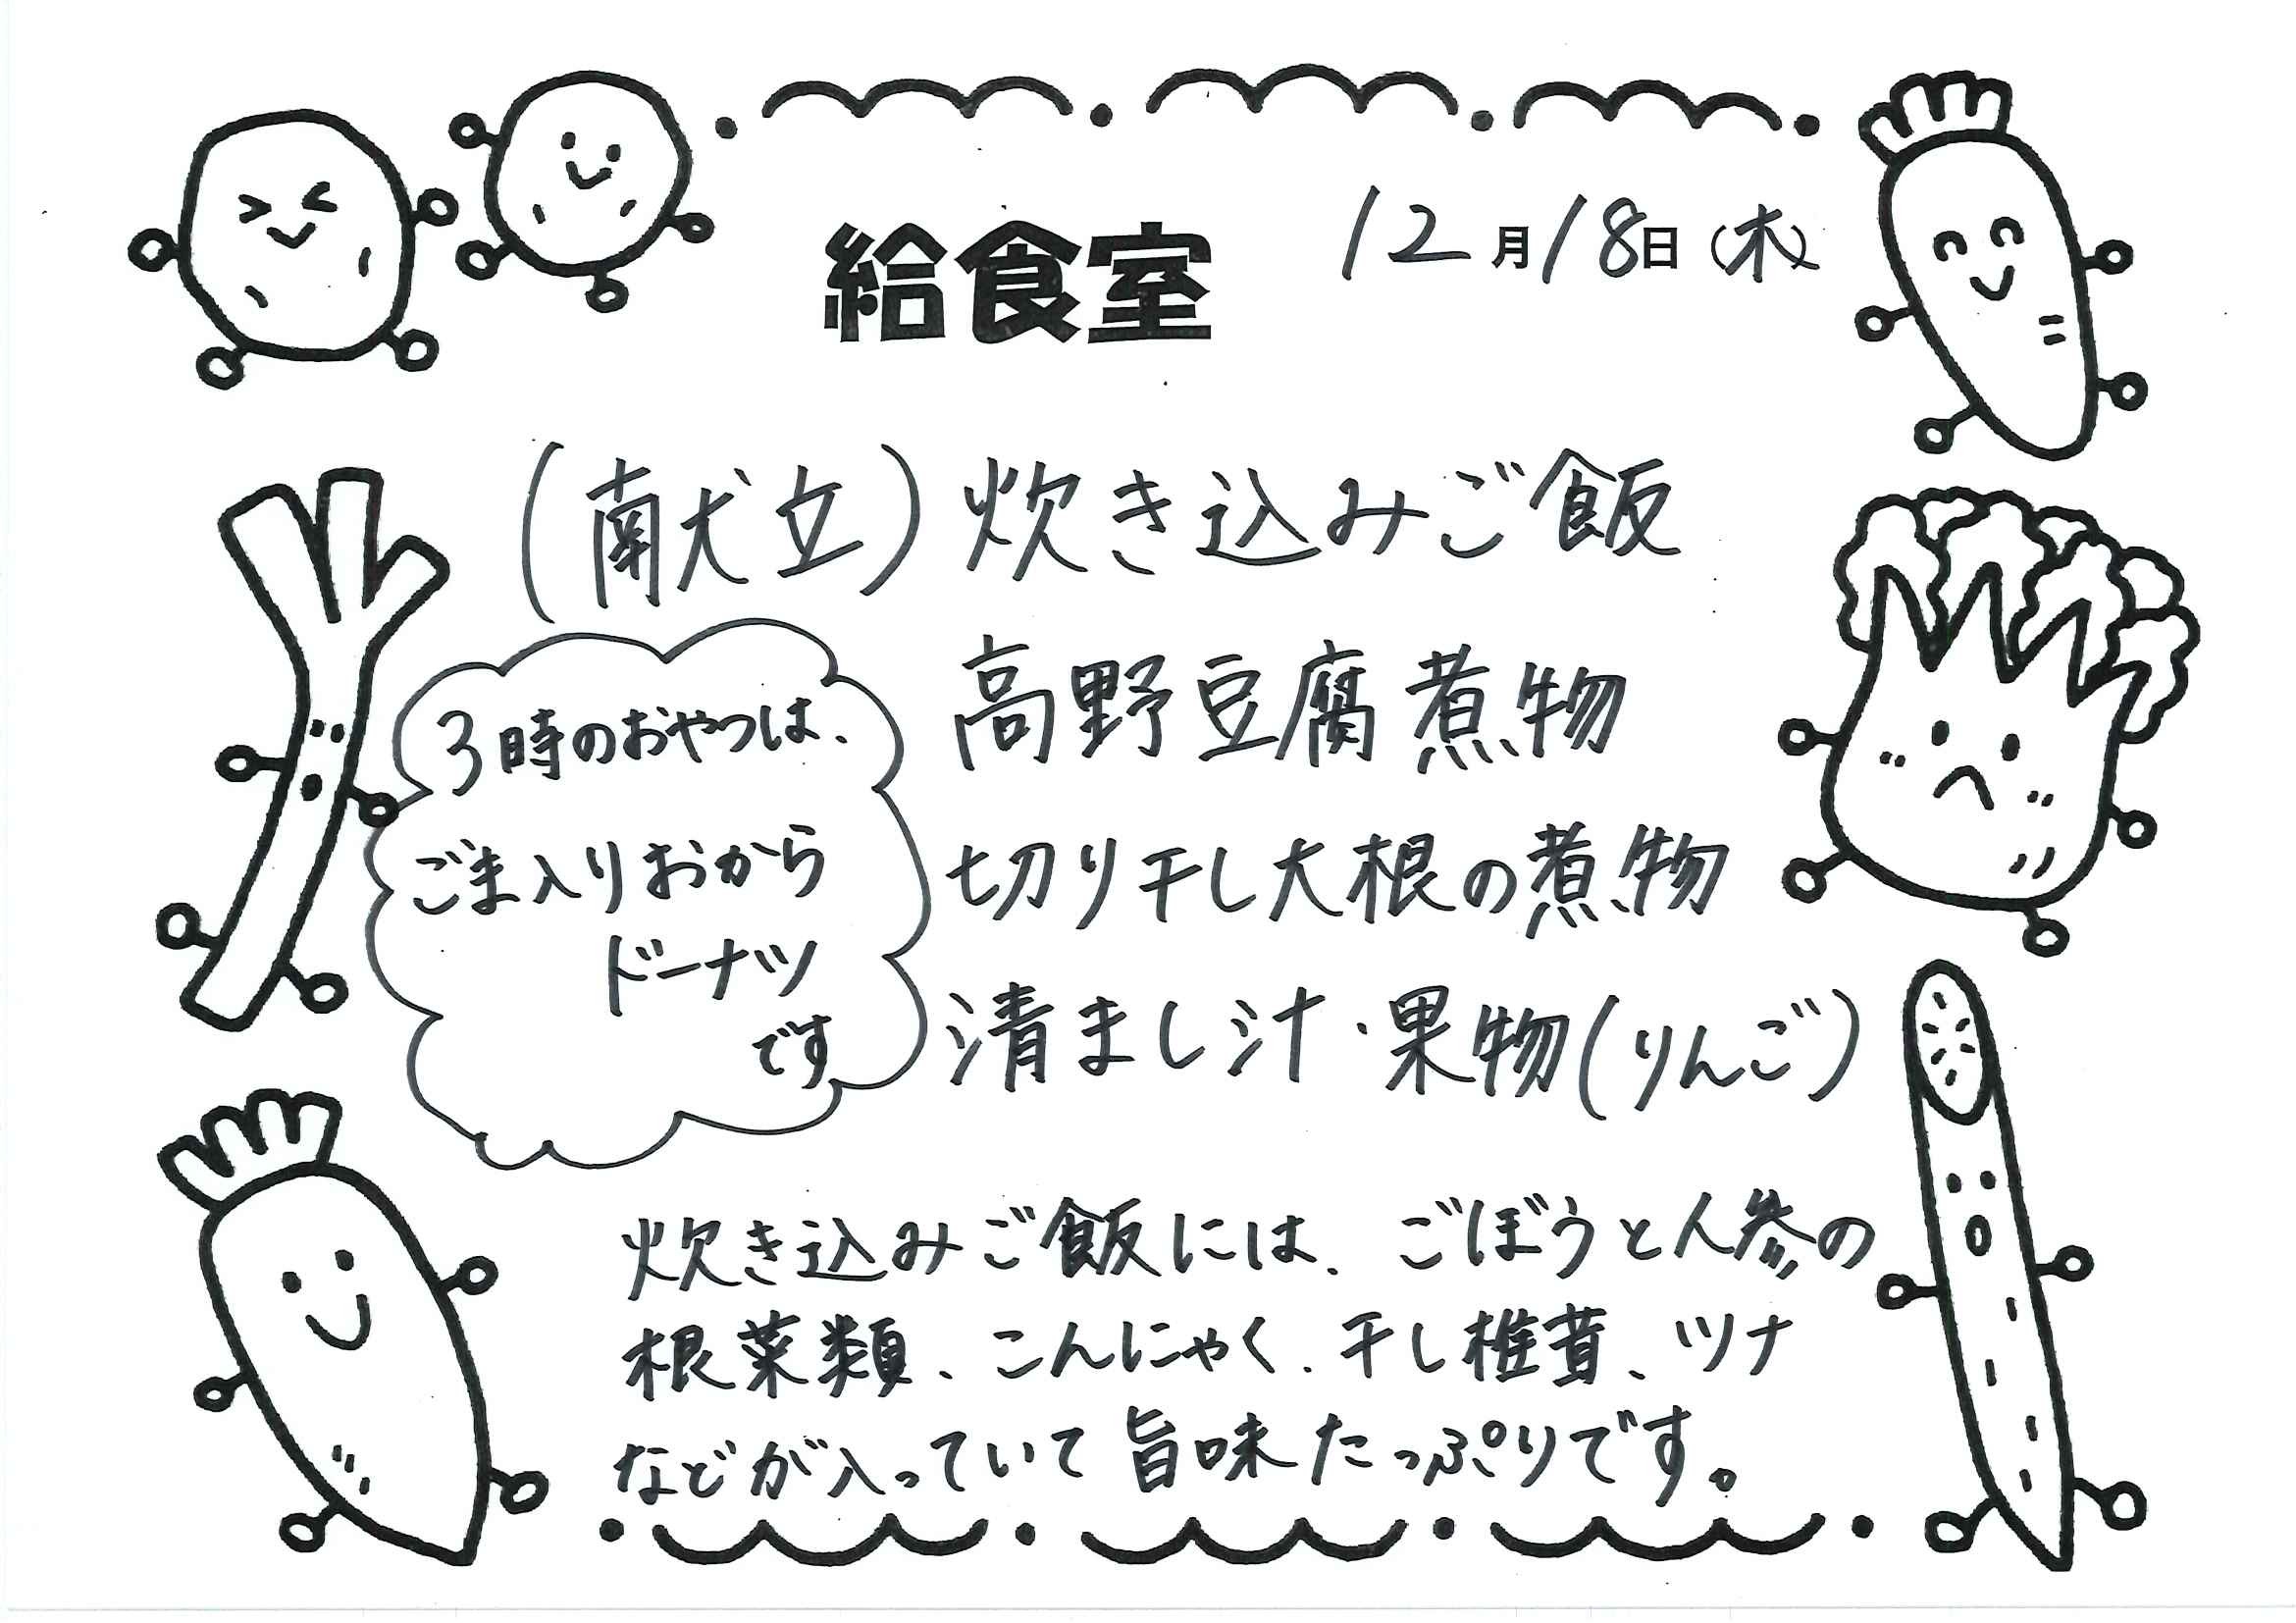 給食室
12月18日(木)
(献立)炊き込みご飯
高野豆腐煮物
切り干し大根の煮物
清まし汁・果物(りんご)
3時のおやつは、
ごま入りおから
ドーナツ
です
炊き込みご飯には、ごぼうと人参の
根菜類、こんにゃく、干し椎茸、ツナ
などが入っていて旨味たっぷりです。